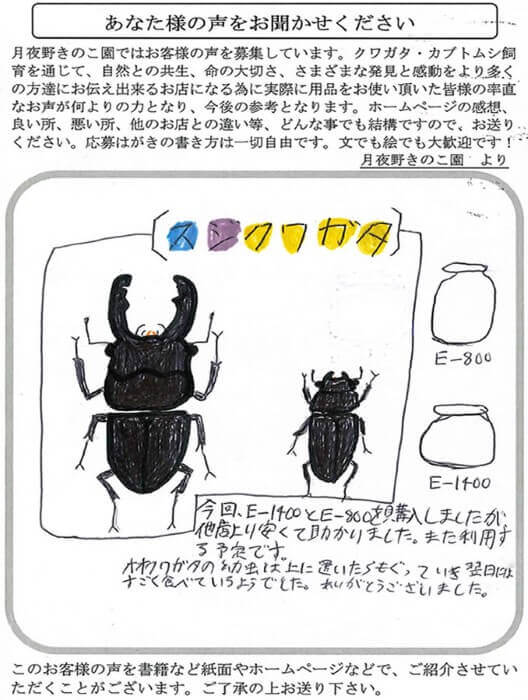 あなた様の声をお聞かせください
月夜野きのこ園ではお客様の声を募集しています。クワガタ・カブトムシ飼
育を通じて、自然との共生、命の大切さ、さまざまな発見と感動をより多く
の方達にお伝え出来るお店になる為に実際に用品をお使い頂いた皆様の率直
なお声が何よりの力となり、今後の参考となります。ホームページの感想、
良い所、悪い所、他のお店との違い等、どんな事でも結構ですので、お送り
ください。応募はがきの書き方は一切自由です。文でも絵でも大歓迎です！
月夜野きのこ園 より
スジクワガタ
E-800
E-1400
今回、E-1400とE-800を購入しましたが
他店より安くて助かりました。また利用す
る予定です。
オオクワガタの幼虫は上に置いたらもぐっていき翌日には
すごく食べているようでした。ありがとうございました。
このお客様の声を書籍など紙面やホームページなどで、ご紹介させてい
ただくことがございます。ご了承の上お送り下さい。